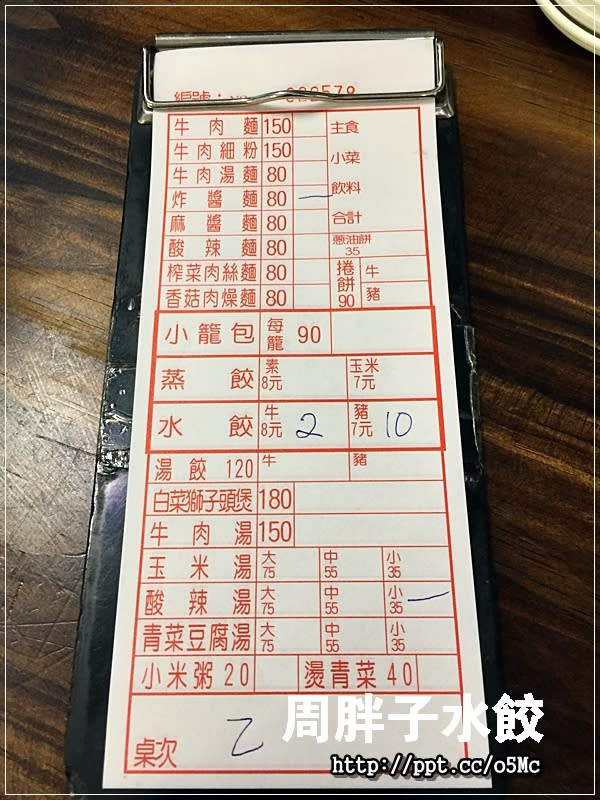 編號：
牛肉麵 150 主食
牛肉細粉 150 小菜
牛肉湯麵 80
炸醬麵 80 一 飲料
麻醬麵 80 合計
酸辣麵 80 蔥油餅 35
榨菜肉絲麵 80 捲餅 90 牛
香菇肉燥麵 80 豬
小籠包 每籠 90
蒸餃 素 8元 玉米 7元
水餃 牛 8元 2 豬 7元 10
湯餃 120 牛 豬
白菜獅子頭煲 180
牛肉湯 150
玉米湯 大 75 中 55 小 35
酸辣湯 大 75 中 55 小 35 一
青菜豆腐湯 大 75 中 55 小 35
小米粥 20 燙青菜 40
桌次
周胖子水餃
http://ppt.cc/o5Mc